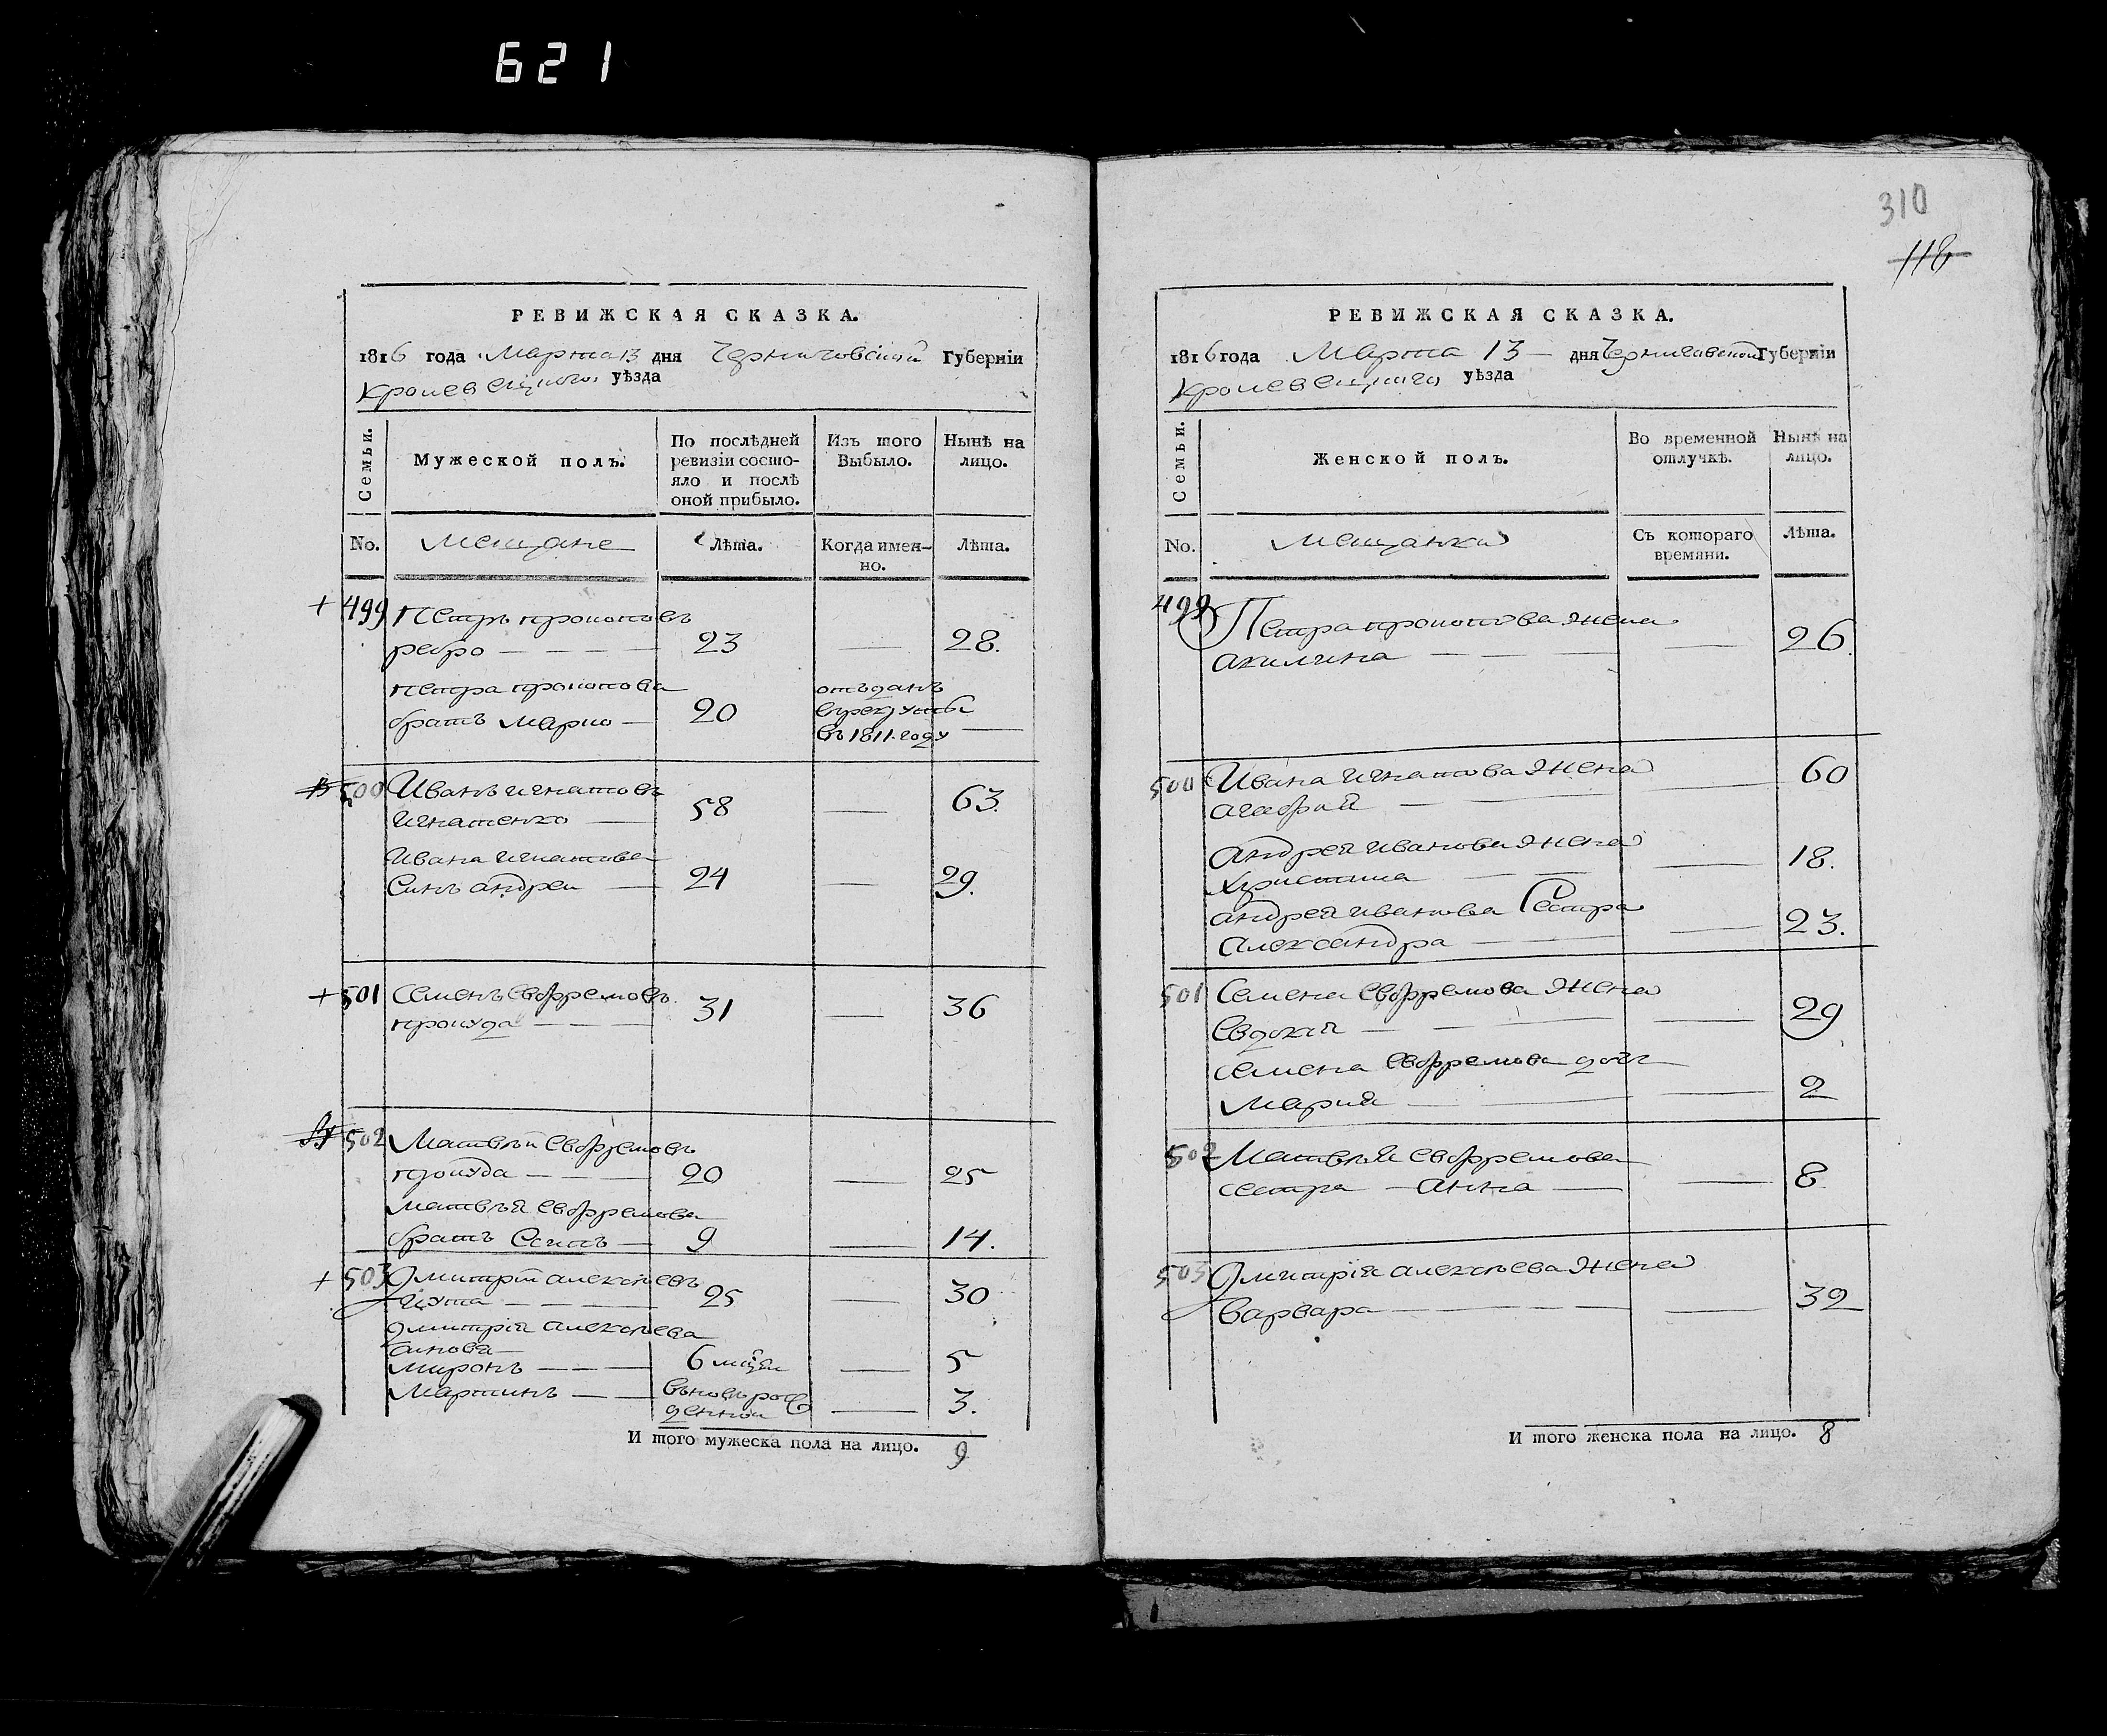 621
РЕВИЖСКАЯ СКАЗКА.
1816 года Марта 13 дня Черниговской Губерніи
Кролевецкого уѣзда
Семьи.
Мужеской полъ.
По послѣдней
ревизіи состо-
яло и послѣ
оной прибыло.
Изъ того
Выбыло.
Нынѣ на
лицо.
No.
Мещане
Лѣта.
Когда имен-
но.
Лѣта.
+ 499 Петръ прокоповъ
ребро — — — — 23 — 28.
петра прокопова
братъ Марко — 20
отъданъ
въ рекруты
въ 1811. году —
500 Иванъ игнатовъ
игнатенко — 58 — 63.
Ивана игнатова
Синъ андрей — 24 — 29.
+ 501 Семенъ евфремовъ
31 — 36
502 Матвѣй евфремовъ
20 — 25
матвѣя евфремова
братъ Есипъ — 9 — 14.
+ 503 Дмитрій алексѣевъ
25 — 30
дмитрія алексѣева
синова
миронъ — — — 6 — 5
Мартинъ — — вьновь рож
денной — 3.
И того мужеска пола на лицо. 9
310
118
РЕВИЖСКАЯ СКАЗКА.
1816 года Марта 13 — дня Черниговской Губерніи
Кролевецкого уѣзда
Семьи.
Женской полъ.
Во временной
отлучкѣ.
Нынѣ на
лицо.
No.
Мещанки
Съ котораго
времяни.
Лѣта.
499 Петра прокопова жена
акилина — — — — 26.
500 Ивана игнатова жена
агафия — — — 60
андрея иванова жена
Христина — — — 18.
андрея иванова Сестра
александра — — — 23.
501 Семена евфремова жена
Евдокия — — — — 29
семена евфремова дочь
Мария — — — 2
502 Матвѣя евфремова
сестра — анна — — 8
503 Дмитрія алексѣева жена
варвара — — — — 32
И того женска пола на лицо. 8